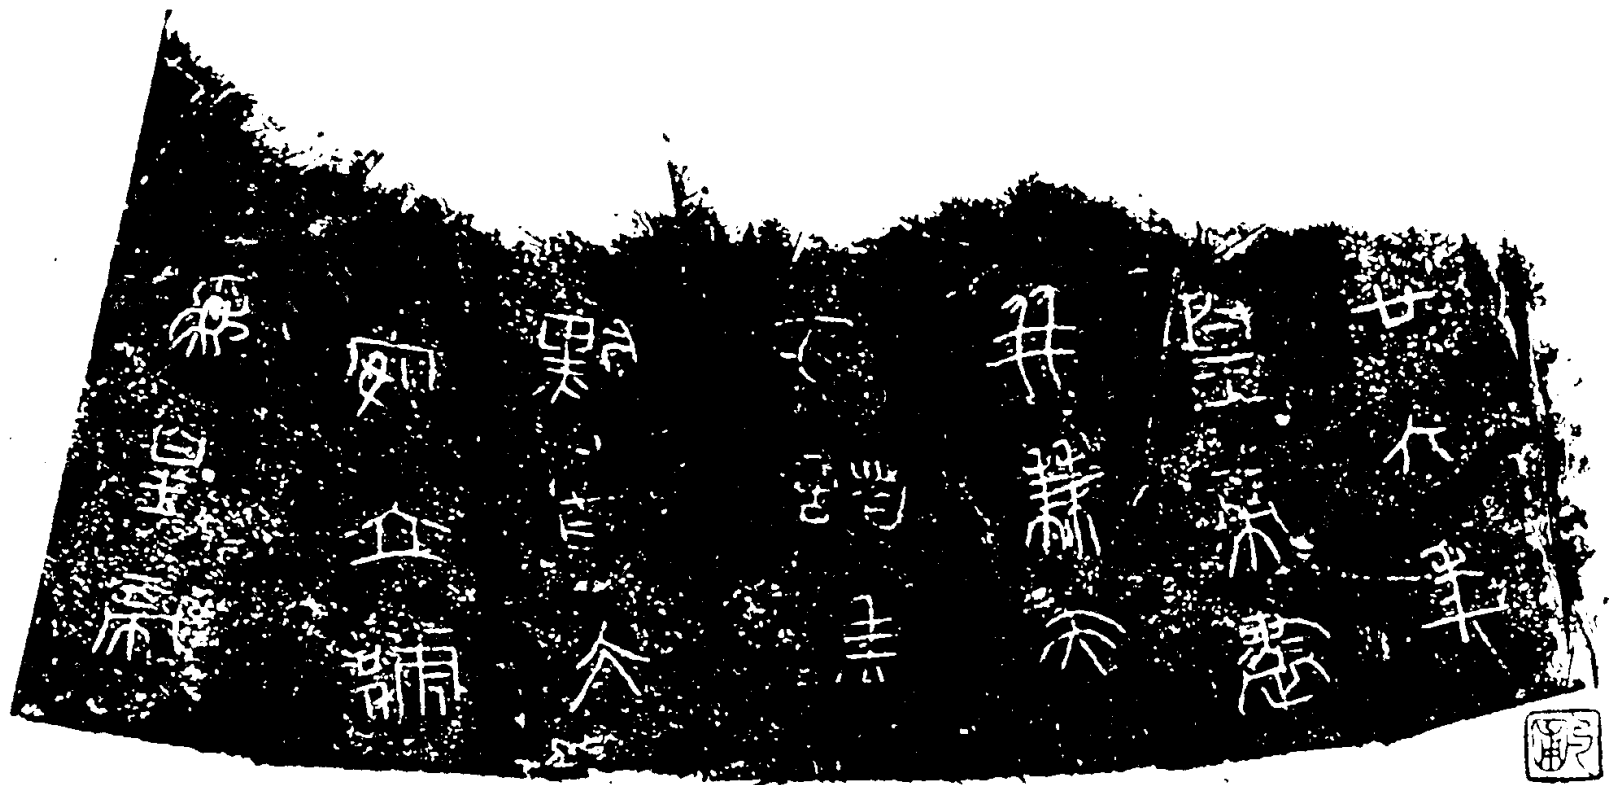 廿六年
皇帝盡
并兼天
下諸侯
黔首大
安立號
為皇帝